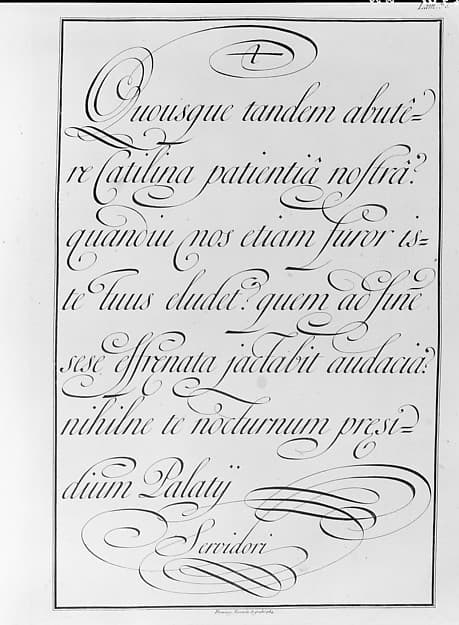 Quousque tandem abutê=
re Catilina patientiâ nostrâ?
quandiu nos etiam furor is=
te tuus eludet? quem ad finē
sese effrenata jactabit audacia?
nihilne te nocturnum pręsi=
dium Palatij
Servidori